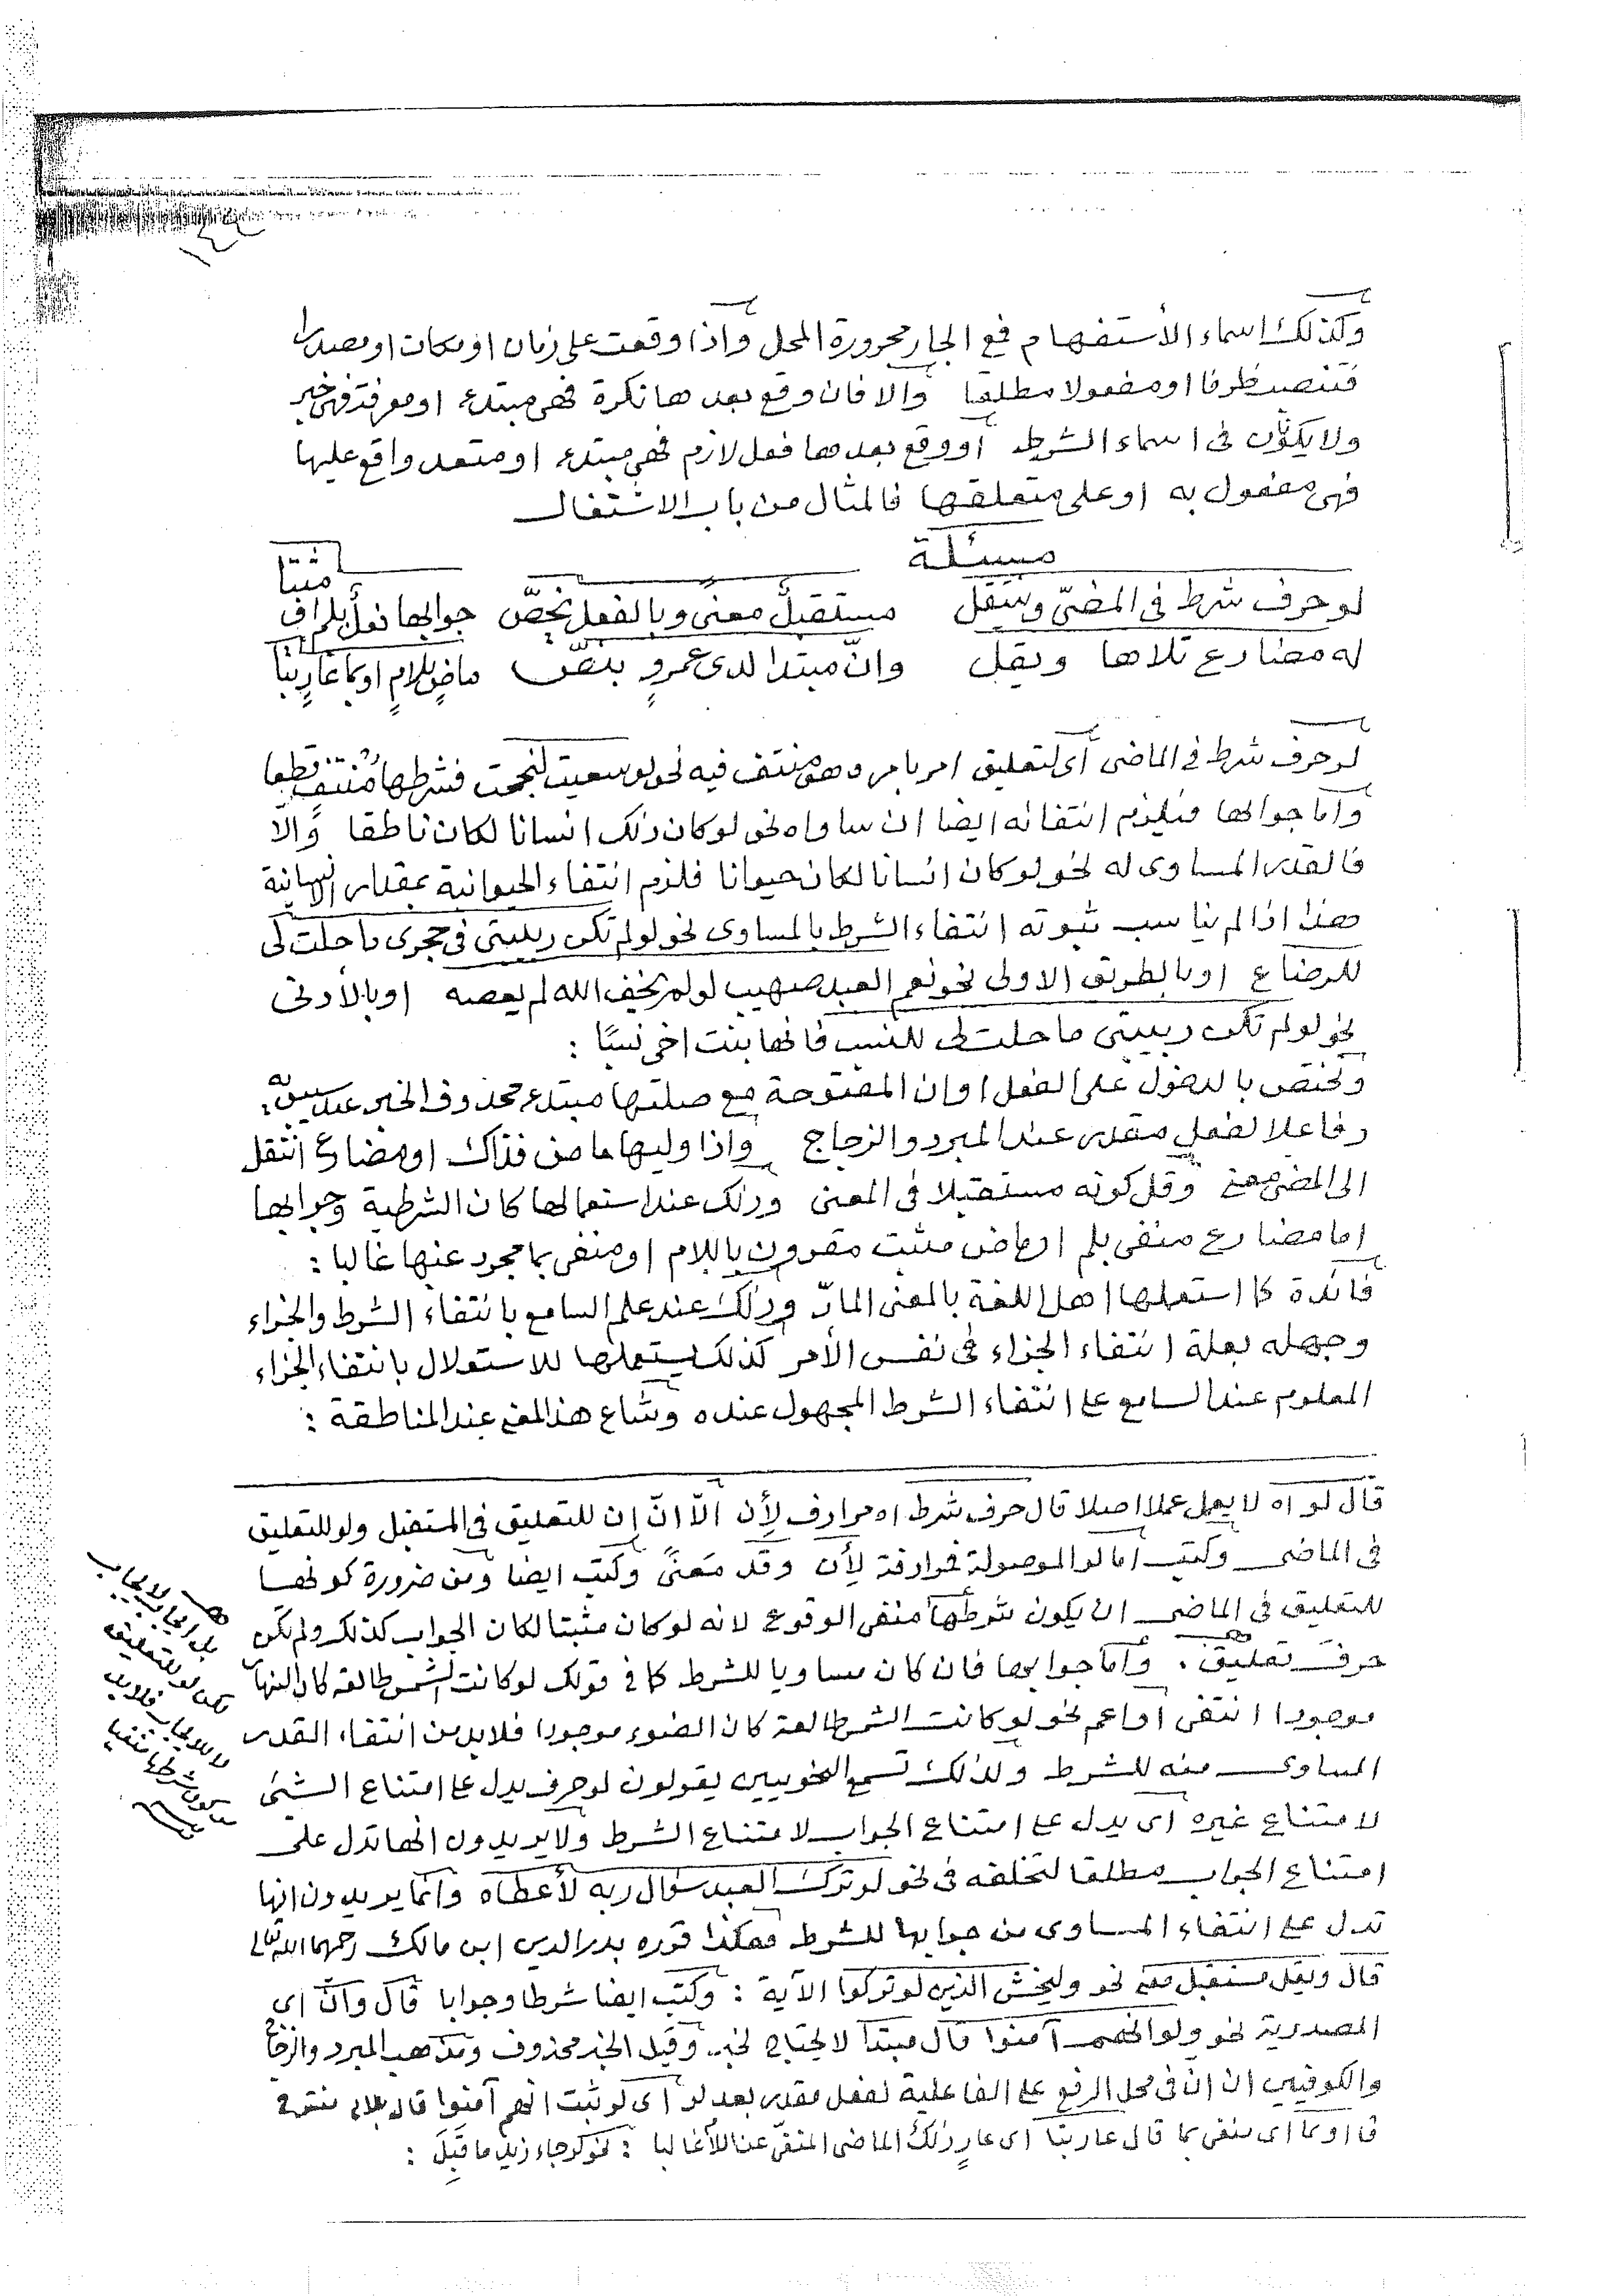 ١٤٤
وكذلك اسماء الأستفهام فمع الجار مجرورة المحل واذا وقعت على زمان او مكان او مصدرا
فتنصب ظرفا او مفعولا مطلقا والا فان وقع بعدها نكرة فهى مبتدء او معرفة فهى خبر
ولا يكون فى اسماء الشرط او وقع بعدها فعل لازم فهى مبتدء او متعد واقع عليها
فهى مفعول به او على متعلقها فالمثال من باب الاشتغال
مسئلة
لو حرف شرط فى المضىّ ويقل مستقبلٌ معنىً وبالفعل يخصّ جوابها فعل بلم اف مثبتا
له مضارع تلاها ويقل وانّ مبتدا لدى عمروٍ ماضٍ بلامٍ او بما عارٍ
لو حرف شرط فى الماضى أى لتعليق امر بامر وهو منتف فيه نحو لو سعيت لنجحت فشرطها مُنتفٍ قطعا
وأما جوابها فيلزم انتفائه ايضا ان ساواه نحو لو كان ذلك انسانا لكان ناطقا وَّالّا
فالقدر المساوى له نحو لو كان انسانا لكان حيوانا فلزم انتفاء الحيوانية بمقدار الانسانية
هذا اذا لم يناسب ثبوته انتفاء الشرط بالمساوى نحو لو لم تكن ربيبتى فى حجرى ما حلت لى
للرضاع او بالطريق الاولى نحو نعم العبد صهيب لو لم يخف الله لم يعصه او بالأدنى
نحو لو لم تكن ربيبتى ما حلت لى للنسب فانها بنت اخى نسبًا :
وتختص بالدخول على الفعل او ان المفتوحة مع صلتها مبتدء محذوف الخبر عند سيبويه
وفاعلا لفعلٍ مقدر عند المبرد والزجاج واذا وليها ماض فذاك او مضارع انتقل
الى المضى معنى وقل كونه مستقبلا فى المعنى وذلك عند استعمالها كان الشرطية وجوابها
اما مضارع منفى بلم او ماض مثبت مقرون باللام او منفى بما مجرد عنها غالبا :
فائدة كما استعملها اهل اللغة بالمعنى المارّ وذلك عند علم السامع بانتفاء الشرط والجزاء
وجهله بعلة انتفاء الجزاء فى نفس الأمر كذلك يستعملها للاستدلال بانتفاء الجزاء
المعلوم عند السامع على انتفاء الشرط المجهول عنده وشاع هذا المعنى عند المناطقة :
قال لو اه لا يعمل عملا اصلا قال حرف شرط اه مرادف لِأن الّا انّ إن للتعليق فى المستقبل ولو للتعليق
فى الماضى وكتب اما لو الموصولة فمرادفة لِأن وقَد مَعنىً وكتب ايضا ومن ضرورة كونها
للتعليق فى الماضى ان يكون شرطها منفى الوقوع لانه لو كان مثبتا لكان الجواب كذلك ولم تكن
حرف تعليق . وأما جوابها فان كان مساويا للشرط كما فى قولك لو كانت الشمس طالعة كان النهار
موجودا انتفى أو اعم نحو لو كانت الشمس طالعة كان الضوء موجودا فلا بد من انتفاء القدر
المساوى منه للشرط ولذلك تسمع النحويين يقولون لو حرف يدل على امتناع الشئ
لامتناع غيره اى يدل على امتناع الجواب لامتناع الشرط ولا يريدون انها تدل على
امتناع الجواب مطلقا لتخلفه فى نحو لو ترك العبد سؤال ربه لأعطاه وانما يريدون انها
تدل على انتفاء المساوى من جوابها للشرط هكذا قرره بدر الدين ابن مالك رحمهما الله تعالى
قال ويقل مستقبل معنى نحو وليخش الذين لو تركوا الآية : وكتب ايضا شرطا وجوابا قال وانّ اى
المصدرية نحو ولو انهم آمنوا قال مبتدأ لا يحتاج لخبر وقيل الخبر محذوف ومذهب المبرد والزجاج
والكوفيين ان انّ فى محل الرفع على الفاعلية لفعل مقدر بعد لو أى لو ثبت انهم آمنوا قال بلام
قا او بما اى منفى بما قال عاريتا اى عارٍ ذلك الماضى المنفىّ عن اللام غالبا : نحو لو جاء زيد ما قُبِلَ :